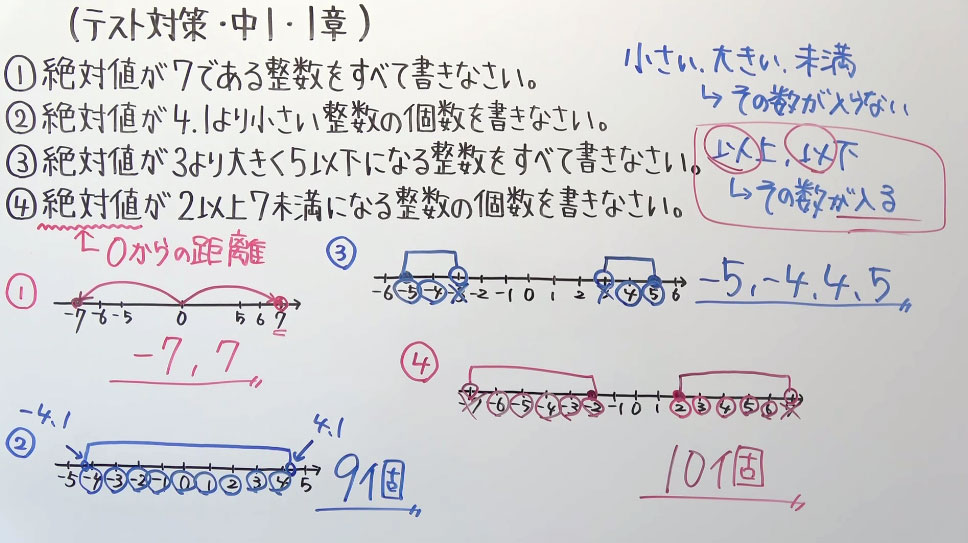 (テスト対策・中1・1章)
①絶対値が7である整数をすべて書きなさい。
②絶対値が4.1より小さい整数の個数を書きなさい。
③絶対値が3より大きく5以下になる整数をすべて書きなさい。
④絶対値が2以上7未満になる整数の個数を書きなさい。
小さい、大きい、未満
↳その数が入らない
以上、以下
↳その数が入る
↑0からの距離
①
-7 -6 -5 0 5 6 7
-7, 7
②
-4.1 4.1
-5 -4 -3 -2 -1 0 1 2 3 4 5
9個
③
-6 -5 -4 -3 -2 -1 0 1 2 3 4 5 6
-5, -4, 4, 5
④
-7 -6 -5 -4 -3 -2 -1 0 1 2 3 4 5 6 7
10個